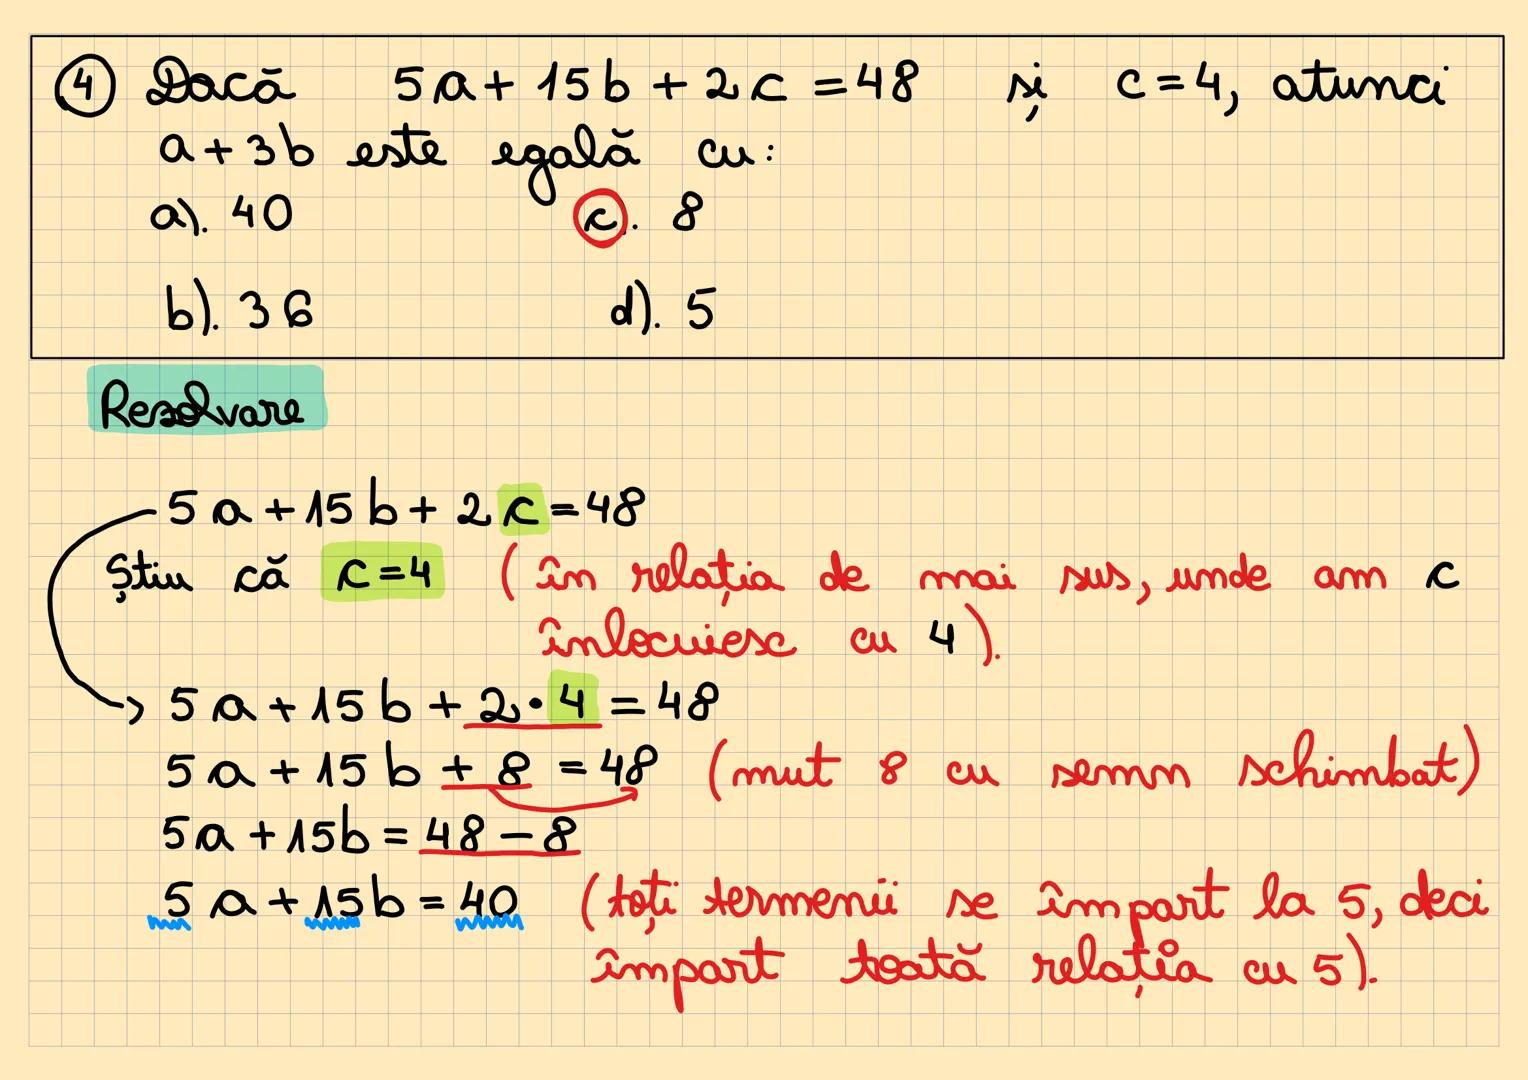 4 Dacă 5a + 15b + 2c = 48 și c = 4, atunci
a + 3b este egală cu:
a). 40 c). 8
b). 36 d). 5
Rezolvare
5a + 15b + 2c = 48
Știu că c = 4 (în relația de mai sus, unde am c
înlocuiesc cu 4).
5a + 15b + 2 · 4 = 48
5a + 15b + 8 = 48 (mut 8 cu semn schimbat)
5a + 15b = 48 - 8
5a + 15b = 40 (toți termenii se împart la 5, deci
împart toată relația cu 5).